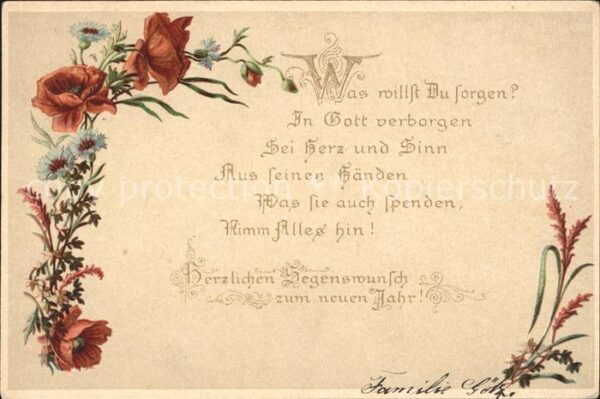 Was willst Du sorgen?
In Gott verborgen
Sei Herz und Sinn
Aus seinen Händen
Was sie auch spenden,
Nimm Alles hin!
Herzlichen Segenswunsch
zum neuen Jahr!
Familie Götz.